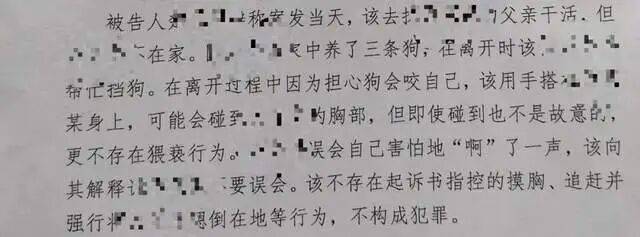 被告人称案发当天，该去找父亲干活，但
在家。家中养了三条狗，在离开时该
帮忙挡狗。在离开过程中因为担心狗会咬自己，该用手搭
某身上，可能会碰到的胸部，但即使碰到也不是故意的，
更不存在猥亵行为。误会自己害怕地“啊”了一声，该向
其解释不要误会。该不存在起诉书指控的摸胸、追赶并
强行将倒在地等行为，不构成犯罪。